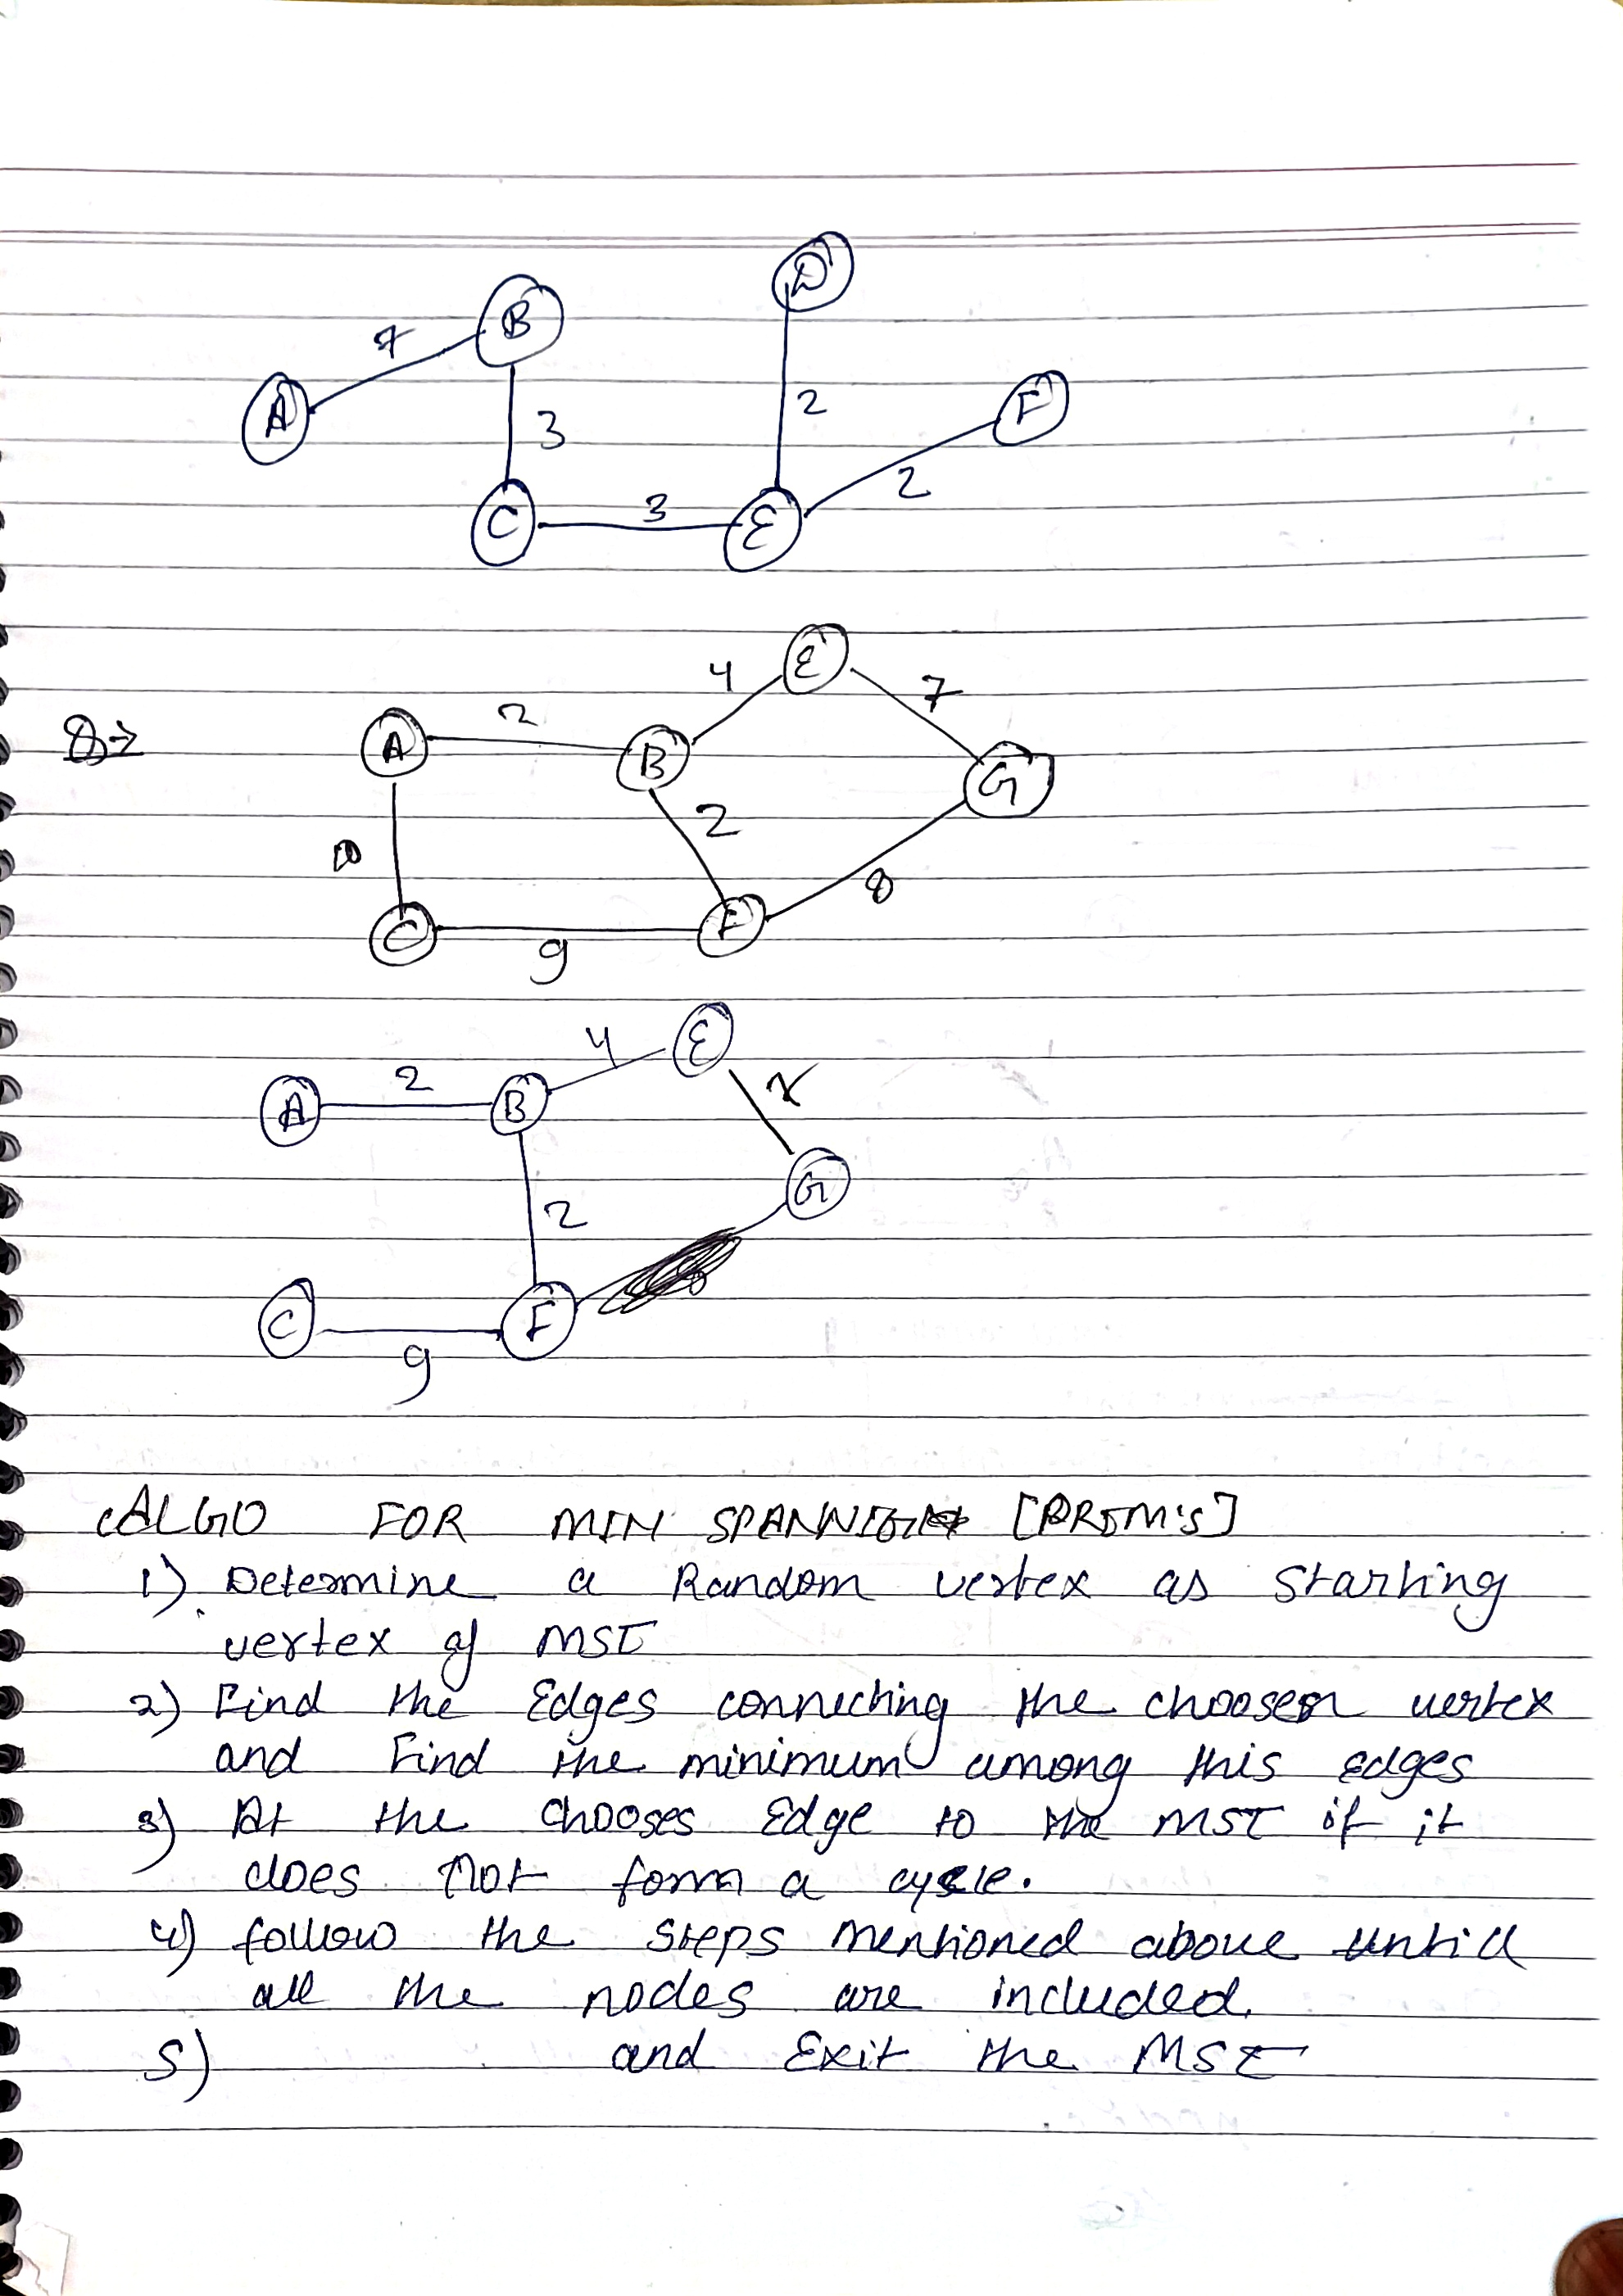 B
D
7
A
3
2
F
2
C
3
E
E
4
7
2
Q→
A
B
G
2
8
C
F
9
E
4
2
A
B
G
2
C
F
9
ALGO FOR MIN SPANNIG [PRIM's]
1) Determine a Random vertex as starting
vertex of MST
2) Find the Edges connecting the choosen vertex
and Find the minimum among this edges
3) At the chooses Edge to the MST if it
does not form a cycle.
4) follow the steps mentioned above untill
all the nodes are included.
5) and Exit the MST